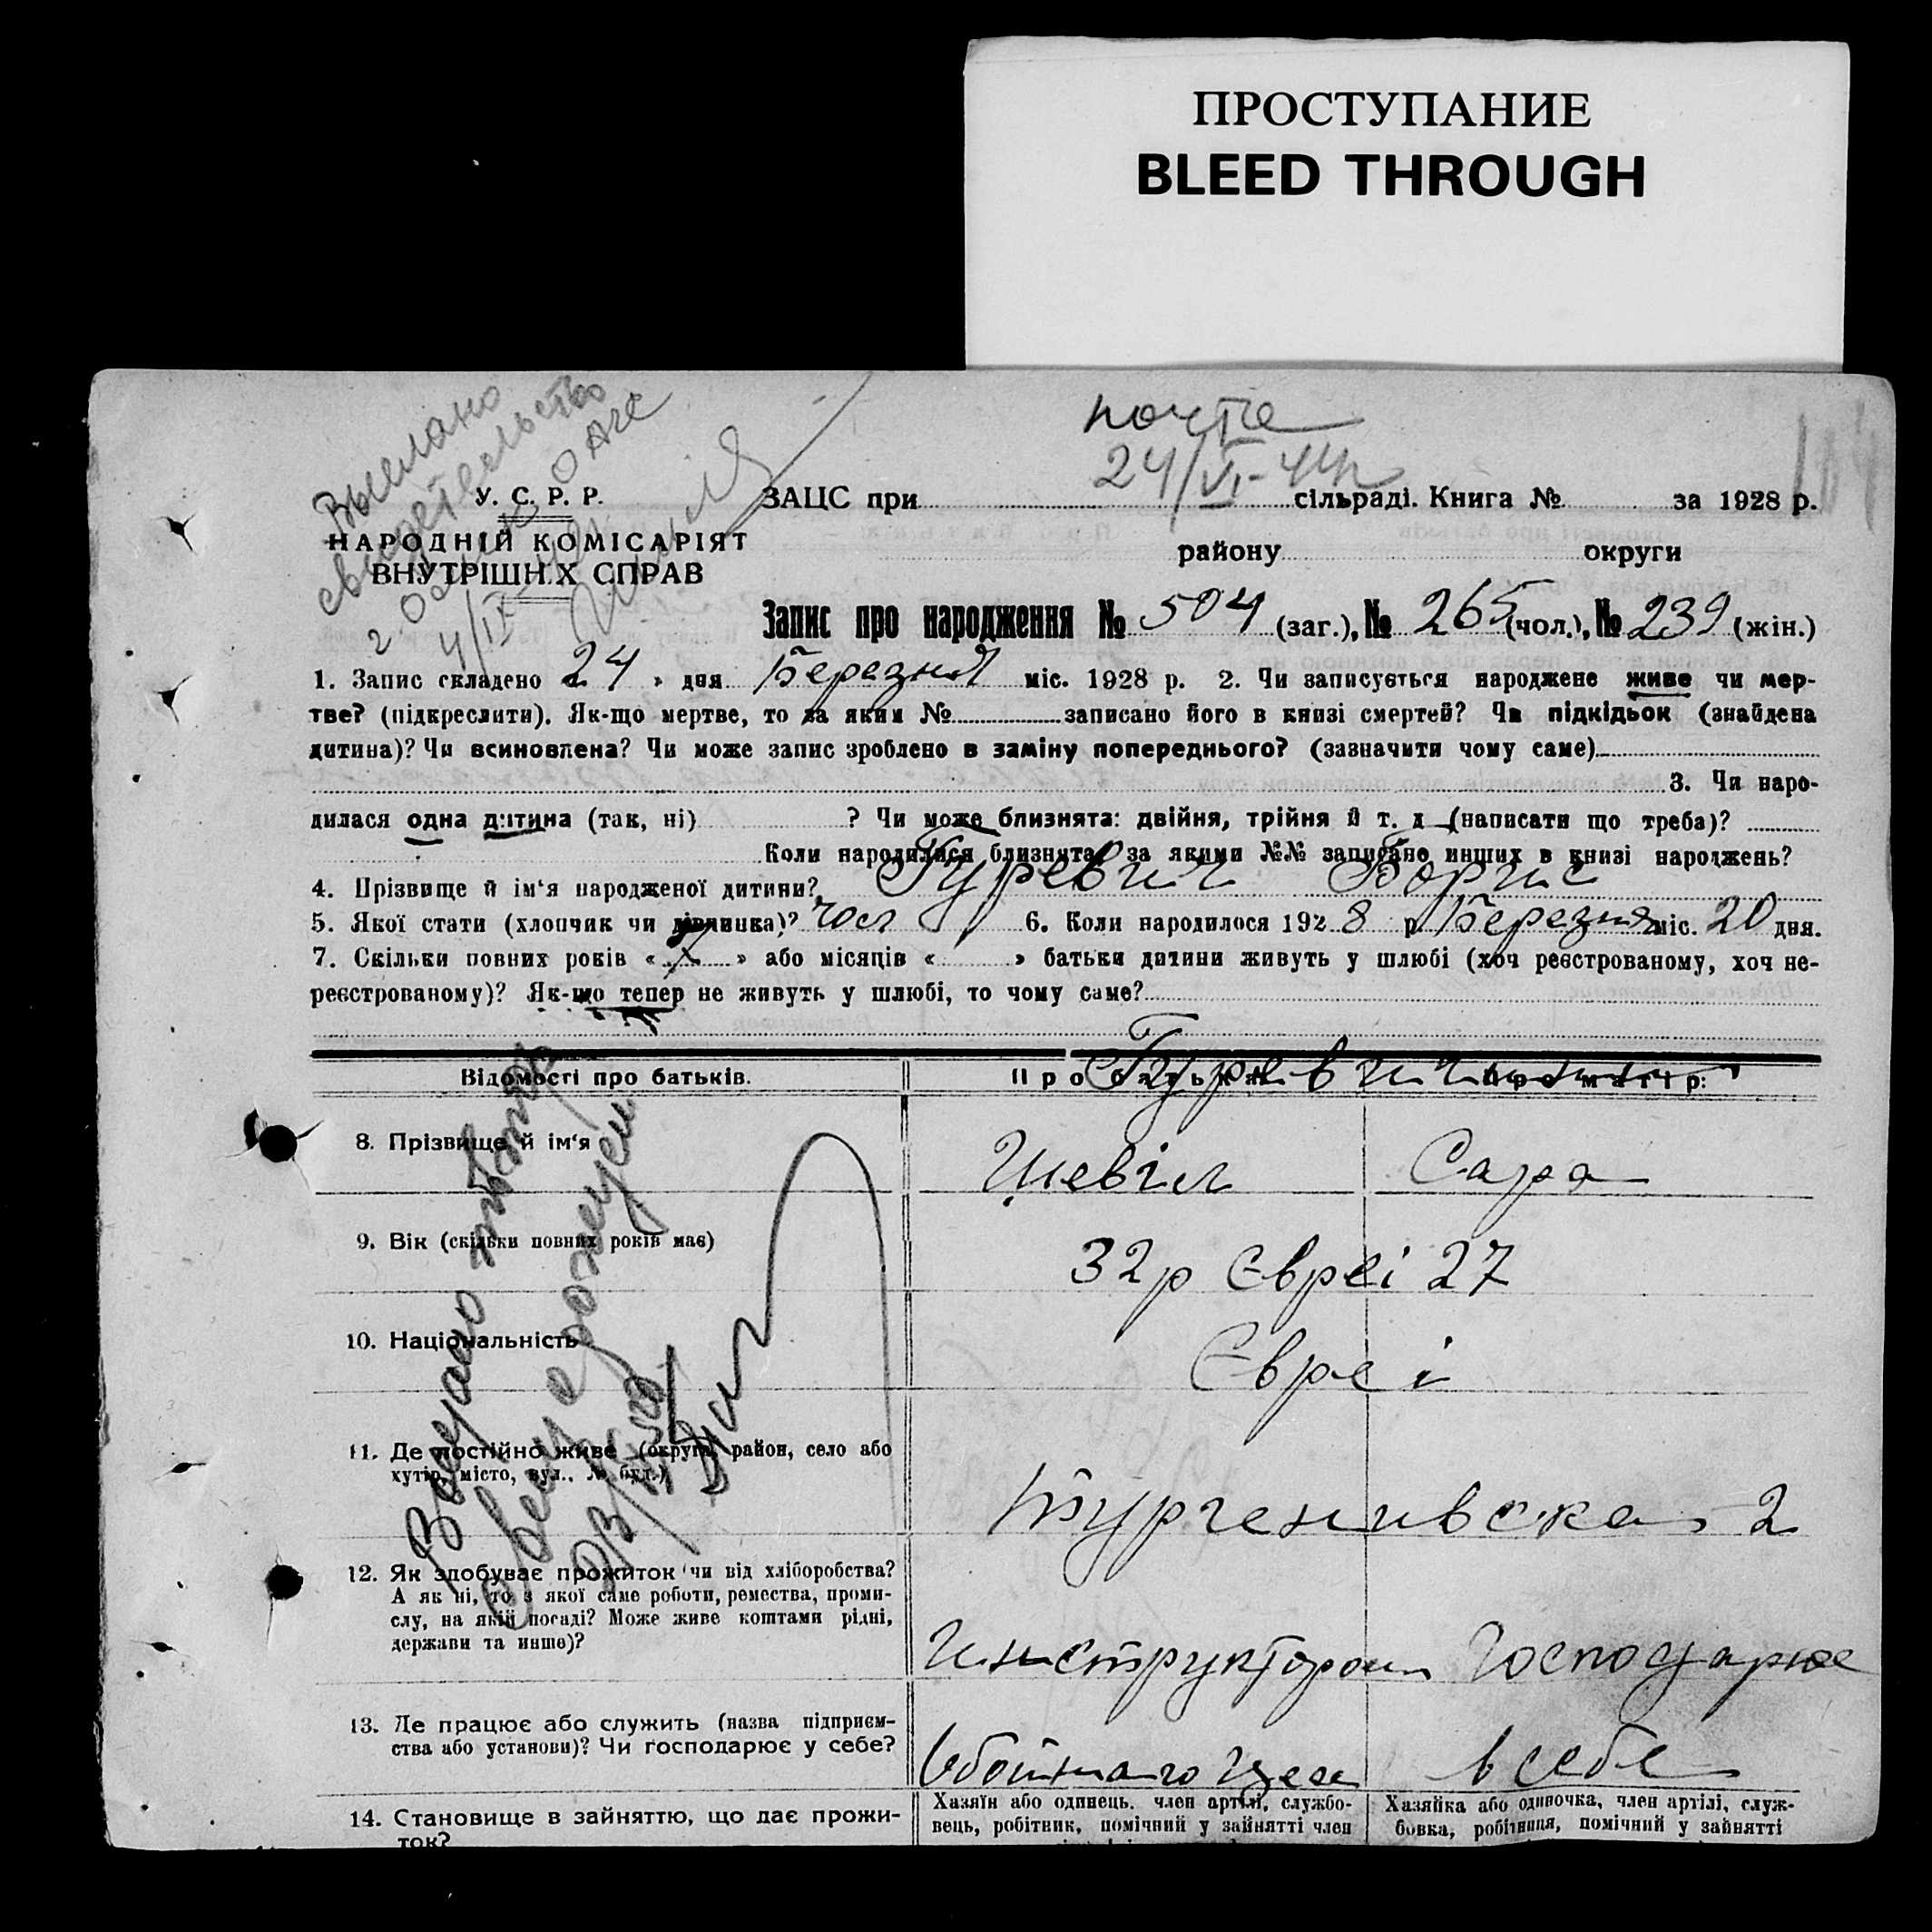 ПРОСТУПАНИЕ
BLEED THROUGH
почта
24/VI-44
Выслано
свидетельство
У. С. Р. Р.
НАРОДНІЙ КОМІСАРІЯТ
ВНУТРІШНІХ СПРАВ
4/IX
ЗАЦС при сільраді. Книга № за 1928 р.
району округи
Запис про народження № 504 (заг.), № 265 (чол.), № 239 (жін.)
1. Запис складено 24 » дня Березня міс. 1928 р. 2. Чи записується народжене живе чи мер-
тве? (підкреслити). Як-що мертве, то за яким № записано його в книзі смертей? Чи підкідьок (знайдена
дитина)? Чи всиновлена? Чи може запис зроблено в заміну попереднього? (зазначити чому саме)
3. Чи наро-
дилася одна дитина (так, ні) ? Чи може близнята: двійня, трійня й т. д (написати що треба)?
Коли народилися близнята, за якими №№ записано инших в книзі народжень?
4. Прізвище й ім'я народженої дитини? Гуревич Борис
5. Якої стати (хлопчик чи дівчинка)? чол 6. Коли народилося 1928 р Березня міс. 20 дня.
7. Скільки повних років « » або місяців « » батьки дитини живуть у шлюбі (хоч реєстрованому, хоч не-
реєстрованому)? Як-що тепер не живуть у шлюбі, то чому саме?
Відомості про батьків. Про батька: Про матір:
Гуревич
8. Прізвище й ім'я Шевел Сара
9. Вік (скільки повних років має) 32 р Євреі 27
10. Національність Євреі
11. Де постійно живе (округа, район, село або
хутір, місто, вул., № буд.) Тургенивска 2
12. Як здобуває прожиток (чи від хліборобства?
А як ні, то з якої саме роботи, ремества, проми-
слу, на якій посаді? Може живе коштами рідні,
держави та инше)? Инструктором Господарює
13. Де працює або служить (назва підприєм-
ства або установи)? Чи господарює у себе? в себе
14. Становище в зайняттю, що дає прожи-
ток?
Хазяїн або одинець, член артілі, службо-
вець, робітник, помічний у зайнятті член
Хазяйка або одиночка, член артілі, служ-
бовка, робітниця, помічний у зайнятті
Видано повторно